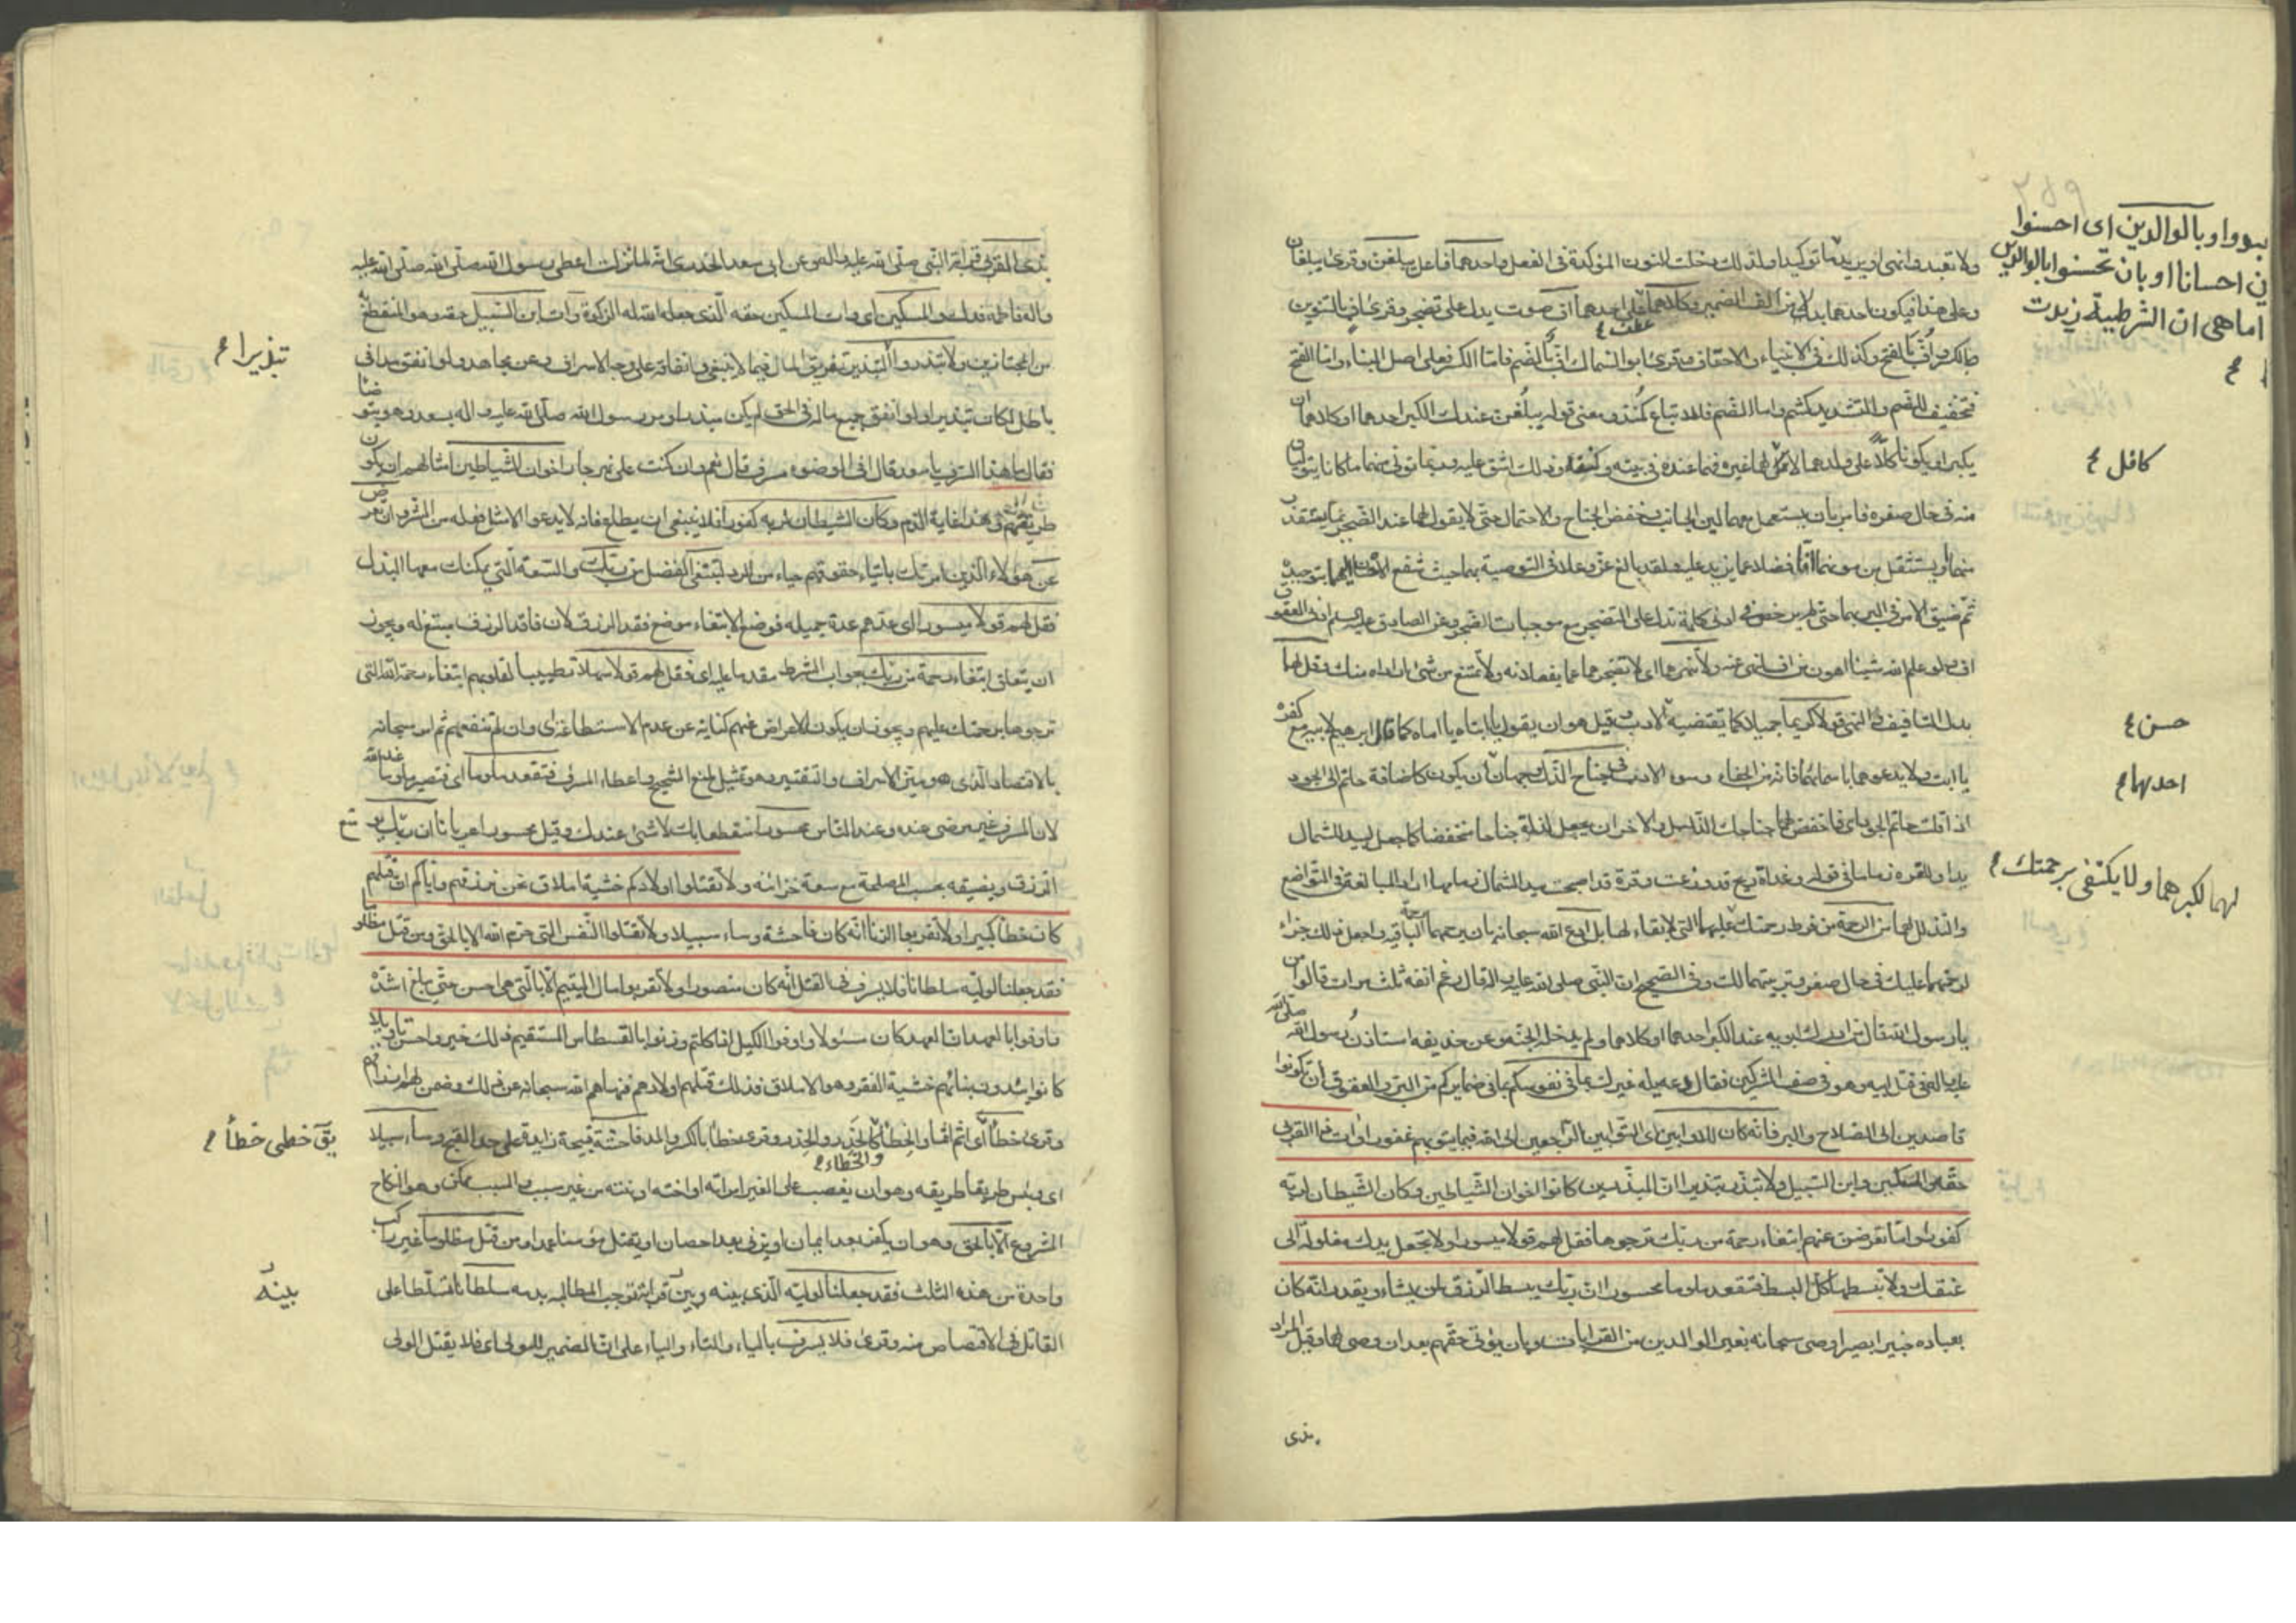 ولا تعبدوا
وعلى هذا فيكون احدهما بدلا من الف الضمير وكلاهما عطف على احدهما اف صوت يدل على تضجر وقرئ اف بالتنوين
والكسر واف بالفتح وكذلك في الانبياء والاحقاف وقرئ ابو السمال اف بالضم فاما الكسر فعلى اصل البناء واما الفتح
فتخفيف للضم والتشديد كثم واما الضم فللاتباع كمنذ ومعنى قوله يبلغن عندك الكبر احدهما او كلاهما ان
يكبرا ويكونا كلا على ولدهما لا كافل لهما غيره فهما عنده في بيته وكنفه وذلك اشق عليه وربما تولى منهما ما كانا يتوليان
منه في حال صغره فامر بان يستعمل معهما لين الجانب وخفض الجناح والاحتمال حتى لا يقول لهما عند الضجر بما يستقذر
منهما ويستثقل من مؤنهما اف فضلا عما يزيد عليه ولقد بالغ عز وعلا في التوصية بهما حيث شفع الاحسان اليهما بتوحيده
ثم ضيق الامر في البر بهما حتى لم يرخص في ادنى كلمة تدل على التضجر مع موجبات الضجر وعن الصادق عليه السلم ادنى العقوق
اف ولو علم الله شيئا اهون من اف لنهى عنه ولا تنهرهما اى لا تضجرهما عما يفعلانه ولا تمتنع من شئ اراداه منك وقل لهما
بدل التافيف والنهر قولا كريما جميلا كما تقتضيه حسن الادب وقيل هو ان يقول يا ابتاه يا اماه كما قال ابرهيم لابيه مع كفره
يا ابت ولا يدعوهما باسمائهما فانه من الجفاء وسوء الادب وفي جناح الذل وجهان احدهما ان يكون كاضافة حاتم الى الجود
اذا قلت حاتم الجود اى فاخفض لهما جناحك الذليل والاخر ان يجعل لذله جناحا منخفضا كما جعل لبيد للشمال
يدا وللقرة زماما في قوله وغداة ريح قد وزعت وقرة قد اصبحت بيد الشمال زمامها اراد المبالغة في التواضع
والتذلل لهما من الرحمة من فرط رحمتك عليهما التى لا بقاء لها بل ادع الله سبحانه بان يرحمهما رحمته الباقيه واجعل ذلك جزاء
لرحمتهما عليك في حال صغرك وتربيتهما لك وفي الصحيح ان النبى صلى الله عليه واله قال رغم انفه ثلث مرات قالوا من
يا رسول الله قال من ادرك ابويه عند الكبر احدهما او كلاهما ولم يدخل الجنة وعن حذيفه استاذن رسول الله صلى الله
عليه واله في قتل ابيه وهو في صف المشركين فقال دعه يله غيرك بما في نفوسكم بما في ضمائركم من البر والعقوق ان تكونوا
قاصدين الى الصلاح والبر فانه كان للاوابين اى التوابين الراجعين الى الله فيما ينوبهم غفورا وات ذا القربى
حقه والمسكين وابن السبيل ولا تبذر تبذيرا ان المبذرين كانوا اخوان الشياطين وكان الشيطان لربه
كفورا واما تعرضن عنهم ابتغاء رحمة من ربك ترجوها فقل لهم قولا ميسورا ولا تجعل يدك مغلولة الى
عنقك ولا تبسطها كل البسط فتقعد ملوما محسورا ان ربك يبسط الرزق لمن يشاء ويقدر انه كان
بعباده خبيرا بصيرا وصى سبحانه بغير الوالدين من القرابات وبان يؤتى حقهم بعد ان وصى بهما وقيل المراد
بذى
وبالوالدين اى احسنوا
احسانا او بان تحسنوا بالوالدين
اما هى ان الشرطية زيدت
كافل
حسن
احدهما
لهما لكبرهما ولا يكتفى برحمتك
بذى القربى قرابة النبى صلى الله عليه واله وعن ابى سعد الخدرى انه لما نزلت اعطى رسول الله صلى الله عليه
واله فاطمة فدك والمسكين اى وات المسكين حقه الذى جعله الله له الزكوة وات ابن السبيل حقه وهو المنقطع به
من المجتازين ولا تبذر تبذيرا والتبذير تفريق المال فيما لا ينبغى وانفاقه على وجه الاسراف وعن مجاهد ولو انفق مدا في
باطل لكان تبذيرا ولو انفق جميع ماله في الحق لم يكن مبذرا ومر رسول الله صلى الله عليه واله بسعد وهو يتوضا
فقال ما هذا السرف يا سعد قال افي الوضوء سرف قال نعم وان كنت على نهر جار اخوان الشياطين امثالهم
طريقتهم وهذا غاية الذم وكان الشيطان لربه كفورا فلا ينبغى ان يطاع فانه لا يدعو الا مثل فعله من الشر وان تعرض
عن هؤلاء الذين امرتك بايتاء حقوقهم حياء من الرد لتبتغى الفضل من ربك والسعة التى يمكنك معها البذل
فقل لهم قولا ميسورا اى عدهم عدة جميله فوضع الابتغاء موضع فقد الرزق لان فاقد الرزق مبتغ له ويجوز
ان يتعلق ابتغاء رحمة من ربك بجواب الشرط مقدما عليه اى فقل لهم قولا سهلا تطييبا لقلوبهم ابتغاء رحمة الله التى
ترجوها برحمتك عليهم ويجوز ان يكون الاعراض عنهم كناية عن عدم الاستطاعة اى وان لم تنفعهم ثم امر سبحانه
بالاقتصاد الذى هو بين الاسراف والتقتير وهو تمثيل لمنع الشحيح واعطاء المسرف فتقعد ملوما اى فتصير ملوما عند الله
لان المسرف غير مرضى عنده وعند الناس محسورا منقطعا بك لا شئ عندك وقيل محسورا عريانا ان ربك يوسع
الرزق ويضيقه بحسب المصلحة مع سعة خزائنه ولا تقتلوا اولادكم خشية املاق نحن نرزقهم واياكم ان قتلهم
كان خطأ كبيرا ولا تقربوا الزنا انه كان فاحشة وساء سبيلا ولا تقتلوا النفس التى حرم الله الا بالحق ومن قتل مظلوما
فقد جعلنا لوليه سلطانا فلا يسرف في القتل انه كان منصورا ولا تقربوا مال اليتيم الا بالتى هى احسن حتى يبلغ اشده
واوفوا بالعهد ان العهد كان مسئولا واوفوا الكيل اذا كلتم وزنوا بالقسطاس المستقيم ذلك خير واحسن تاويلا
كانوا يئدون بناتهم خشية الفقر وهو الاملاق فذلك قتلهم اولادهم فنهاهم الله سبحانه عن ذلك وضمن لهم ارزاقهم
وقرئ خطأ اى اثم يقال خطى خطأ والخطأ والخطاء كالحذر والحذر وقرئ خطاء بالكسر والمد فاحشة قبيحة زايدة على حد القبح وساء سبيلا
اى وبئس طريقا طريقه وهو ان يغصب على الغير امراته او اخته او بنته من غير سبب والسبب ممكن وهو النكاح
المشروع الا بالحق وهو ان يكفر بعد ايمان او يزنى بعد احصان او يقتل مؤمنا عمدا ومن قتل مظلوما غير راكب
واحدة من هذه الثلث فقد جعلنا لوليه الذى بينه وبينه قرابة توجب المطالبه بدمه سلطانا تسلطا على
القاتل في الاقتصاص منه وقرئ فلا يسرف بالياء والتاء والياء على ان الضمير للولى اى فلا يقتل الولى
تبذيرا
يق خطى خطأ
بينه